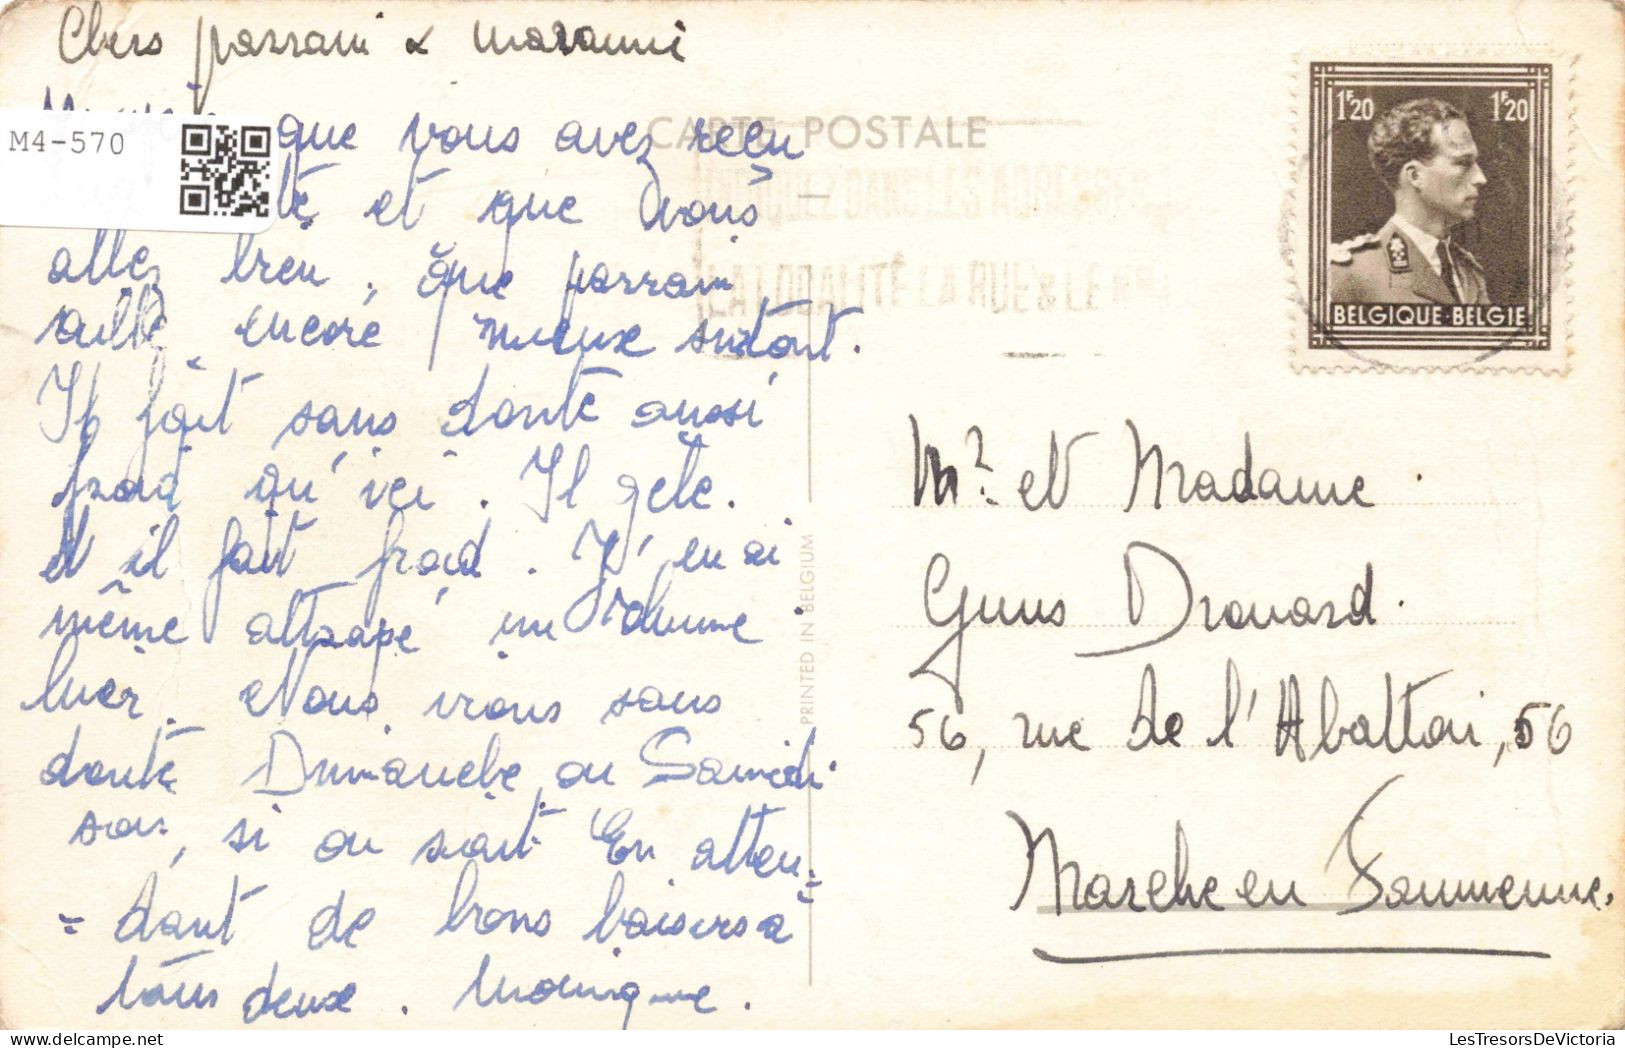 Chers parrain & marainne
que vous avez reçu
et que vous
allez bien. Que parrain
aille encore mieux surtout.
Il fait sans doute aussi
froid qu'ici. Il gèle.
et il fait froid. J'en ai
même attrapé un rhume
hier. Nous irons sans
doute Dimanche ou Samedi
soir, si on sort. En atten=
=dant de bons baisers à
tous deux. Monique.
M4-570
CARTE POSTALE
INDIQUEZ DANS LES ADRESSES
LA LOCALITÉ LA RUE & LE
PRINTED IN BELGIUM
1F20 1F20
BELGIQUE·BELGIE
Mr et Madame
Guus Drouard.
56, rue de l'Abattoir, 56
Marche en Famenne.
LesTresorsDeVictoria